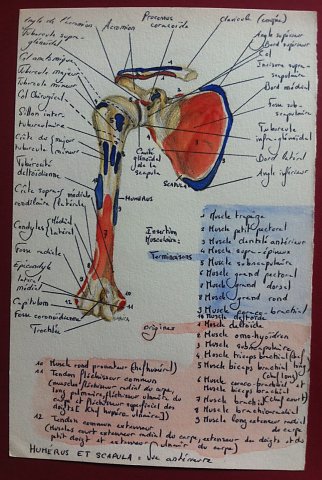 Angle de l'acromion
Acromion
Processus
coracoïde
Clavicule (coupée)
Tubercule supra-
glénoïdal
Col anatomique
Tubercule majeur
Tubercule mineur
Col Chirurgical
Sillon inter
tuberculaire
Crête du tubercule
majeur
mineur
Tubérosité
deltoïdienne
Crête supra-
condylaire
médiale
latérale
Condyles
Médial
latéral
Fosse radiale
Epicondyle
latéral
médial
Capitulum
Fosse coronoïdienne
Trochlée
Angle supérieur
Bord supérieur
Col
Incisure supra-
scapulaire
Bord médial
Fosse sub-
scapulaire
Tubercule
infra-glénoïdal
Bord latéral
Angle inférieur
Cavité
glénoïdale
de la
scapula
SCAPULA
HUMÉRUS
Insertion
Musculaire:
Terminaisons
1 Muscle trapèze
2 Muscle petit pectoral
3 Muscle dentelé antérieur
4 Muscle supra-épineux
5 Muscle subscapulaire
6 Muscle grand pectoral
7 Muscle grand dorsal
8 Muscle grand rond
9 Muscle coraco-brachial
10 Muscle deltoïde
Origines
1 Muscle deltoïde
2 Muscle omo-hyoïdien
3 Muscle subscapulaire
4 Muscle triceps brachial (chef long)
5 Muscle biceps brachial (chef long)
6 Muscle coraco-brachial et
Muscle biceps brachial (chef court)
7 Muscle brachial
8 Muscle brachioradial
9 Muscle long extenseur radial
du carpe
10 Muscle rond pronateur (chef huméral)
11 Tendon fléchisseur commun
(muscles fléchisseur radial du carpe,
long palmaire, fléchisseur ulnaire du
carpe et fléchisseur superficiel des
doigts [chef huméro ulnaire])
12 Tendon commun extenseur
(Muscles court extenseur radial du carpe, extenseur des doigts et du
petit doigt et extenseur ulnaire du carpe)
HUMÉRUS ET SCAPULA = vue antérieure